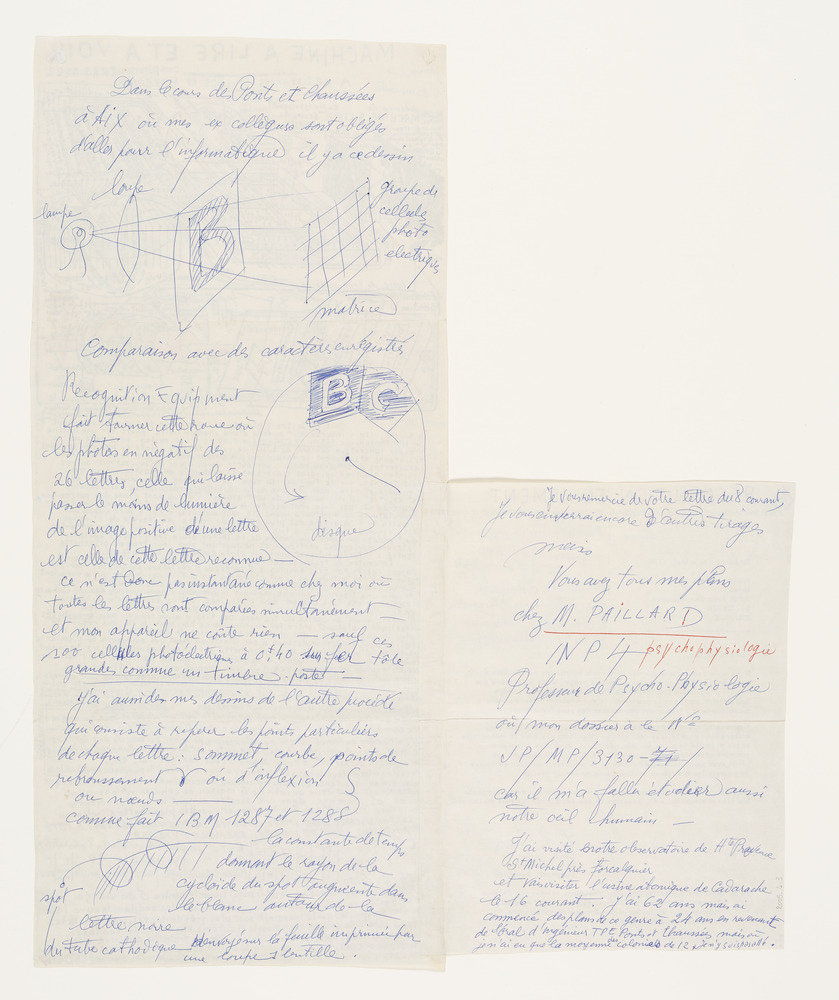 Dans le cours des Ponts et Chaussées
à AiX où mes ex collègues sont obligés
d'aller pour l'informatique il y a ce dessin
lampe
loupe
B
groupe de
cellules
photo
electriques
matrice
Comparaison avec des caractères enrégistrés
Recognition Equipment
fait tourner cette roue où
les photos en négatif des
26 lettres, celle qui laisse
passer le moins de lumière
de l'image positive d'une lettre
est celle de cette lettre reconnue —
B C
disque
ce n'est donc pas instantané comme chez moi où
toutes les lettres sont comparées simultanément —
et mon appareil ne coûte rien — sauf ces
100 cellules photoélectriques à 0,40 sur fer tôle
grandes comme un timbre-poste —
j'ai aussi des mes dessins de l'autre procédé
qui consiste à repérer les points particuliers
de chaque lettre : sommet, courbe, points de
rebroussement ou d'inflexion
ou nœuds —
comme fait IBM 1287 et 1288
la constante de temps
donnant le rayon de la
cycloïde du spot augmente dans
le blanc autour de la
spot
lettre noire
du tube cathodique envoyé sur la feuille imprimée par
une loupe 1 lentille.
Je vous remercie de votre lettre du 8 courant,
Je vous enverrai encore d'autres tirages
mais
Vous avez tous mes plans
chez M. PAILLARD
INP 4 psychophysiologie
Professeur de Psycho-Physiologie
où mon dossier a le N°
JP/MP/3130
car il m'a fallu étudier aussi
notre œil humain —
J'ai visité l'observatoire de Hte Provence
St Michel près Forcalquier
et vais visiter l'usine atomique de Cadarache
le 16 courant. J'ai 62 ans mais ai
commencé des plans de ce genre à 24 ans en revenant
de l'oral d'Ingénieur TPE Ponts et Chaussées mais où
je n'ai eu que la moyenne coloniale de 12